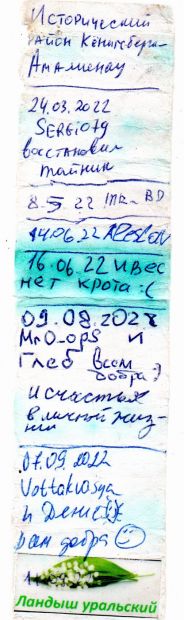 Исторический
район Кёнигсберга-
Амалиенау
24.03.2022
SERGIO79
восстановил
тайник
8.5.22 MR_BD
14.06.22
16.06.22 ивес
нет крота :(
09.08.2022
MrO_ops и
Глеб Всем
добра :)
и счастья
в личной жиз-
ни
07.09.2022
Vottakvosya
и Денис
Вам добра
Ландыш уральский